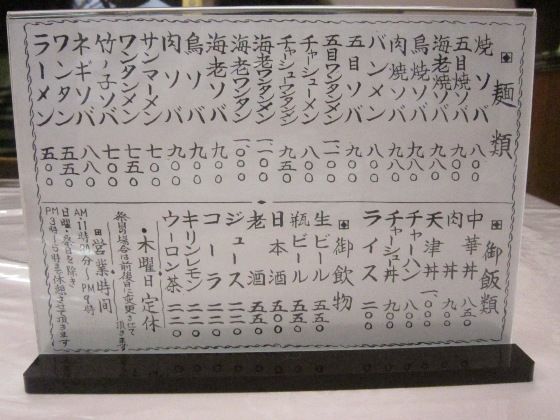 麺類
焼ソバ 八〇〇
五目焼ソバ 九〇〇
海老焼ソバ 九〇〇
鳥焼ソバ 九〇〇
肉焼ソバ 九八〇
バンメン 九〇〇
五目ソバ 九〇〇
五目ワンタンメン 一一〇〇
チャーシューメン 九〇〇
チャーシュウワンタンメン 九五〇
海老ワンタンメン 一一〇〇
海老ワンタン 一〇〇〇
海老ソバ 九〇〇
鳥ソバ 九〇〇
肉ソバ 九〇〇
サンマーメン 七〇〇
ワンタンメン 七五〇
竹ノ子ソバ 七〇〇
ネギソバ 八八〇
ワンタン 五五〇
ラーメン 五〇〇
御飯類
中華丼 八五〇
肉丼 九〇〇
天津丼 一〇〇〇
チャーハン 八〇〇
チャーシュ丼 九〇〇
ライス 二〇〇
御飲物
生ビール 五五〇
瓶ビール 五五〇
日本酒 五〇〇
老酒 五五〇
ジュース 二二〇
コーラ 二二〇
キリンレモン 二二〇
ウーロン茶 二二〇
・木曜日定休
祭日の場合は前後日に変更させて頂きます
営業時間
AM11時30分〜PM9時
日曜・祭日を除き
PM3時〜5時まで休憩させて頂きます